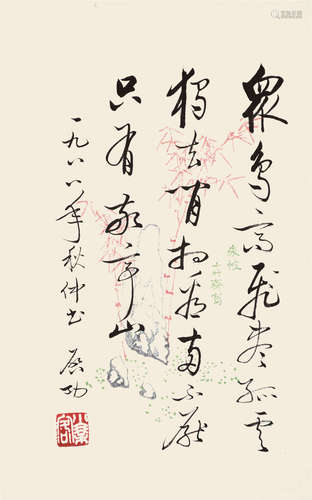 眾鳥高飛盡孤雲
獨去閒相看兩不厭
只有敬亭山
一九八八年秋仲書 啟功